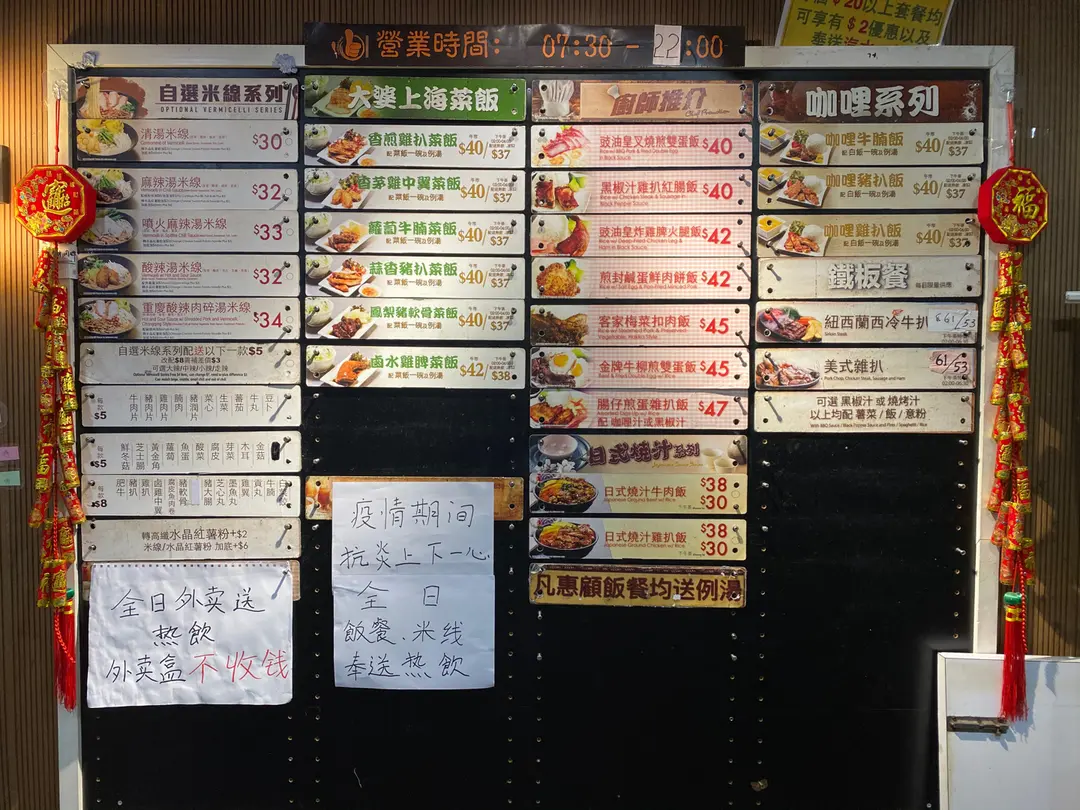 營業時間： 07:30 - 22:00
$20以上套餐均
可享有$2優惠以及
自選米線系列
OPTIONAL VERMICELLI SERIES
清湯米線 $30
麻辣湯米線 $32
噴火麻辣湯米線 $33
酸辣湯米線 $32
重慶酸辣肉碎湯米線 $34
自選米線系列配送以下一款$5
改配$8需補差價$3
可選大辣/中辣/小辣/走辣
每款$5
牛肉片
豬肉片
雞肉片
腩肉
豬潤片
菜心
生菜
番茄
牛丸
豆卜
每款$5
鮮冬菇
芝士腸
黃金角
蘿蔔
魚蛋
酸菜
腐皮
芽菜
木耳
金菇
$8
肥牛
豬扒
雞扒
鹵雞中翼
豬軟骨
豬大腸
芝心丸
墨魚丸
雞翼
貢丸
牛腩
轉高纖水晶紅薯粉+$2
米線/水晶紅薯粉 加底+$6
全日外卖送
热飲
外卖盒不收钱
大婆上海菜飯
香煎雞扒菜飯 $40/$37
配 菜飯一碗及例湯
香茅雞中翼菜飯 $40/$37
配 菜飯一碗及例湯
蘿蔔牛腩菜飯 $40/$37
配 菜飯一碗及例湯
蒜香豬扒菜飯 $40/$37
配 菜飯一碗及例湯
鳳梨豬軟骨菜飯 $40/$37
配 菜飯一碗及例湯
鹵水雞脾菜飯 $42/$38
配 菜飯一碗及例湯
疫情期间
抗炎上下一心
全日
飯餐、米线
奉送热飲
廚師推介
豉油皇叉燒煎雙蛋飯 $40
黑椒汁雞扒紅腸飯 $40
豉油皇炸雞脾火腿飯 $42
煎封鹹蛋鮮肉餅飯 $42
客家梅菜扣肉飯 $45
金牌牛柳煎雙蛋飯 $45
腸仔煎蛋雜扒飯 $47
配 咖哩汁或黑椒汁
日式燒汁系列
日式燒汁牛肉飯 $38
$30
日式燒汁雞扒飯 $38
$30
凡惠顧飯餐均送例湯
咖哩系列
咖哩牛腩飯 $40/$37
配 白飯一碗及例湯
咖哩豬扒飯 $40/$37
配 白飯一碗及例湯
咖哩雞扒飯 $40/$37
配 白飯一碗及例湯
鐵板餐
每日限量供應
紐西蘭西冷牛扒 $61/53
美式雜扒 61/53
可選 黑椒汁 或 燒烤汁
以上均配 薯菜 / 飯 / 意粉
With BBQ Sauce / Black Pepper Sauce and Fries / Spaghetti / Rice
福